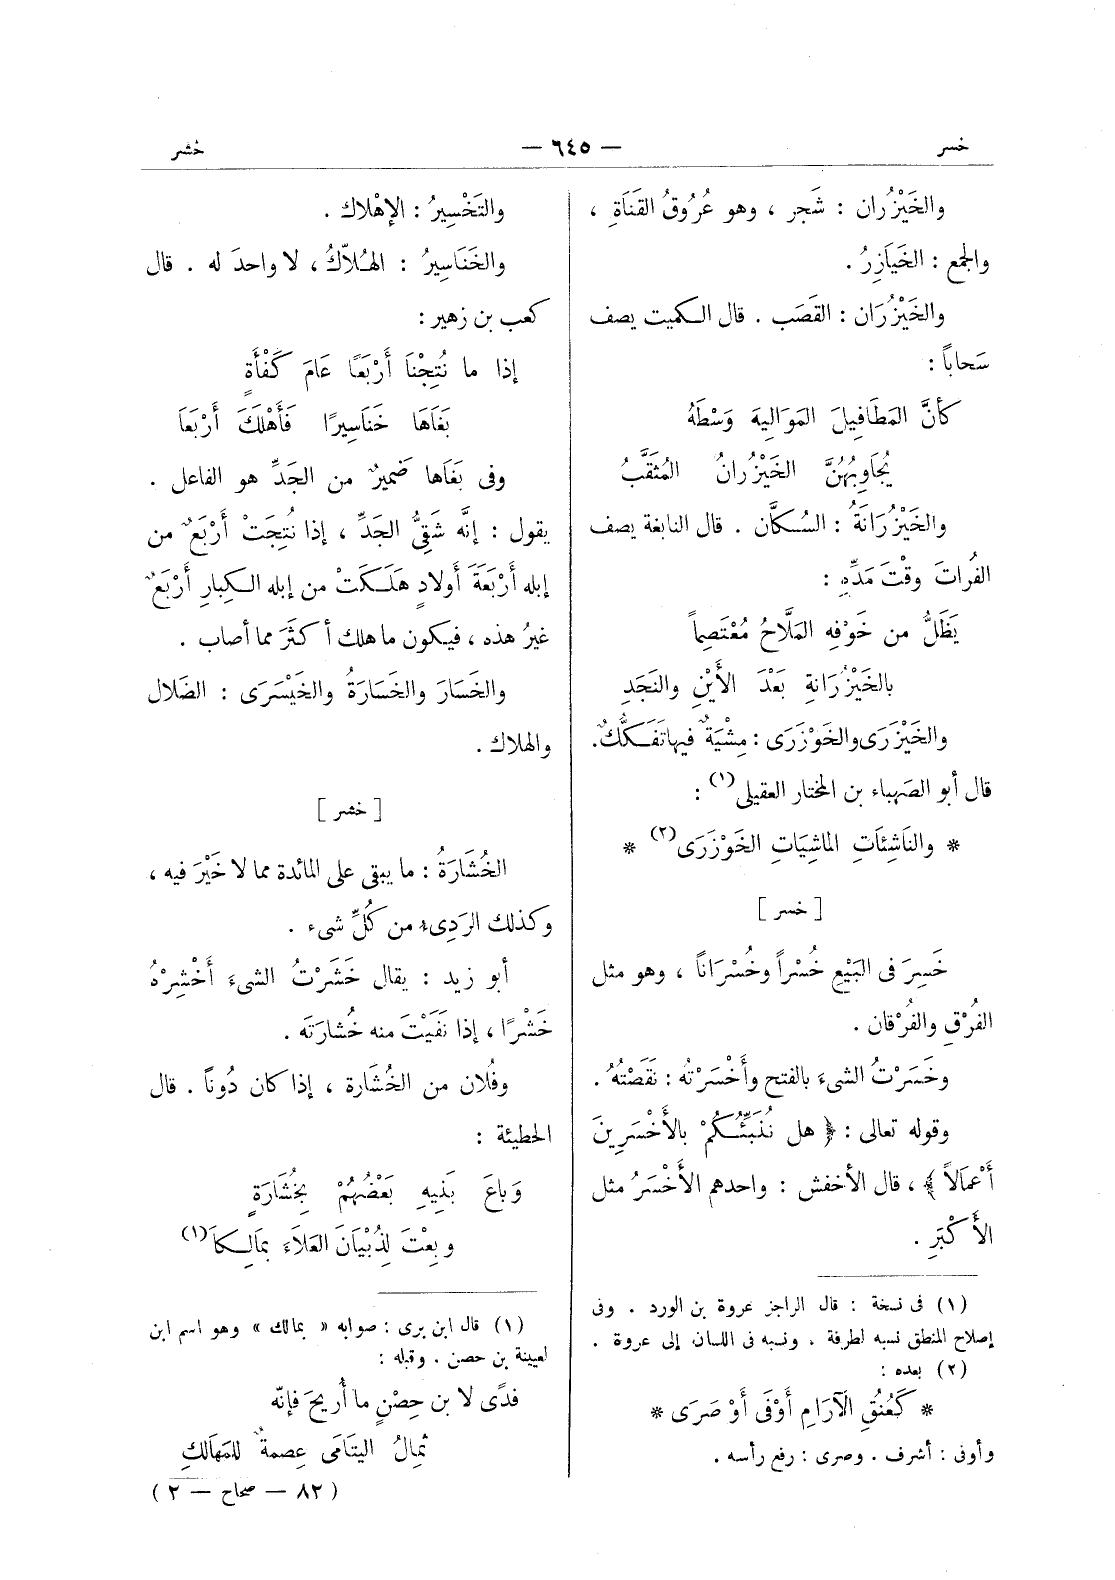 خسر — ٦٤٥ — خشر
والخَيْزُران : شَجر ، وهو عُرُوقُ القَنَاةِ ،
والجمع : الخَيَازِرُ .
والخَيْزُرَان : القَصَب . قال الكميت يصف
سَحاباً :
كأنَّ المَطَافِيلَ المَوَالِيهَ وَسْطَهُ
يُجَاوِبُهُنَّ الخَيْزُرانُ المُثَقَّبُ
والخَيْزُرَانَةُ : السُكَّان . قال النابغة يصف
الفُراتَ وقْتَ مَدِّهِ :
يَظَلُّ من خَوْفِهِ المَلَّاحُ مُعْتَصِماً
بالخَيْزُرَانةِ بَعْدَ الأَيْنِ والنَجَدِ
والخَيْزَرَى والخَوْزَرَى : مِشْيَةٌ فيها تَفَكُّكٌ .
قال أبو الصَهباء بن المختار العقيلى (١) :
* والنَاشِئَاتِ الماشِيَاتِ الخَوْزَرَى (٢) *
[ خسر ]
خَسِرَ فى البَيْعِ خُسْراً وخُسْرَاناً ، وهو مثل
الفُرْقِ والفُرْقان .
وخَسَرْتُ الشىءَ بالفتح وأَخْسَرْتُه : نَقَصْتُهُ .
وقوله تعالى : ﴿ هل نُنَبِّئُكُمْ بالأَخْسَرِينَ
أَعْمَالاً ﴾ ، قال الأخفش : واحدهم الأَخْسَرُ مثل
الأَكْبَرِ .
(١) فى نسخة : قال الراجز عروة بن الورد . وفى
إصلاح المنطق نسبه لطرفة ، ونسبه فى اللسان إلى عروة .
(٢) بعده :
* كَعُنُقِ الآرَامِ أَوْفَى أَوْ صَرَى *
وأوفى : أشرف . وصرى : رفع رأسه .
والتَخْسِيرُ : الإهْلاك .
والخَنَاسِيرُ : الهُلاَّكُ ، لا واحدَ له . قال
كعب بن زهير :
إذا ما نُتِجْنَا أَرْبَعًا عَامَ كَفْأَةٍ
بَغَاهَا خَنَاسِيرًا فَأَهْلَكَ أَرْبَعَا
وفى بَغَاها ضَمِيرٌ من الجَدِّ هو الفاعل .
يقول : إنَّه شَقِىُّ الجَدِّ ، إذا نُتِجَتْ أَرْبَعٌ من
إبله أَرْبَعَةَ أولادٍ هَلَكَتْ من إبله الكِبارِ أَرْبَعٌ
غيرُ هذه ، فيكون ما هلك أكثَرَ مما أصاب .
والخَسَارَ والخَسَارَةُ والخَيْسَرَى : الضَلال
والهلاك .
[ خشر ]
الخُشَارَةُ : ما يبقى على المائدة مما لا خَيْرَ فيه ،
وكذلك الرَدِىء من كُلِّ شىء .
أبو زيد : يقال خَشَرْتُ الشىءَ أَخْشِرُهُ
خَشْرًا ، إذا نَفَيْتَ منه خُشارَتَه .
وفُلان من الخُشَارة ، إذا كان دُوناً . قال
الحطيئة :
وَبَاعَ بَنِيهِ بَعْضُهُمْ بِخُشَارَةٍ
وبِعْتَ لِذُبْيَانَ العَلَاءَ بمَالِكَا (١)
(١) قال ابن برى : صوابه « بمالك » وهو اسم ابن
لعيينة بن حصن . وقبله :
فدًى لابن حِصْنٍ ما أُرِيحَ فإنّه
ثِمالُ اليتَامَى عِصمةٌ للمَهَالكِ
( ٨٢ — صحاح — ٢ )